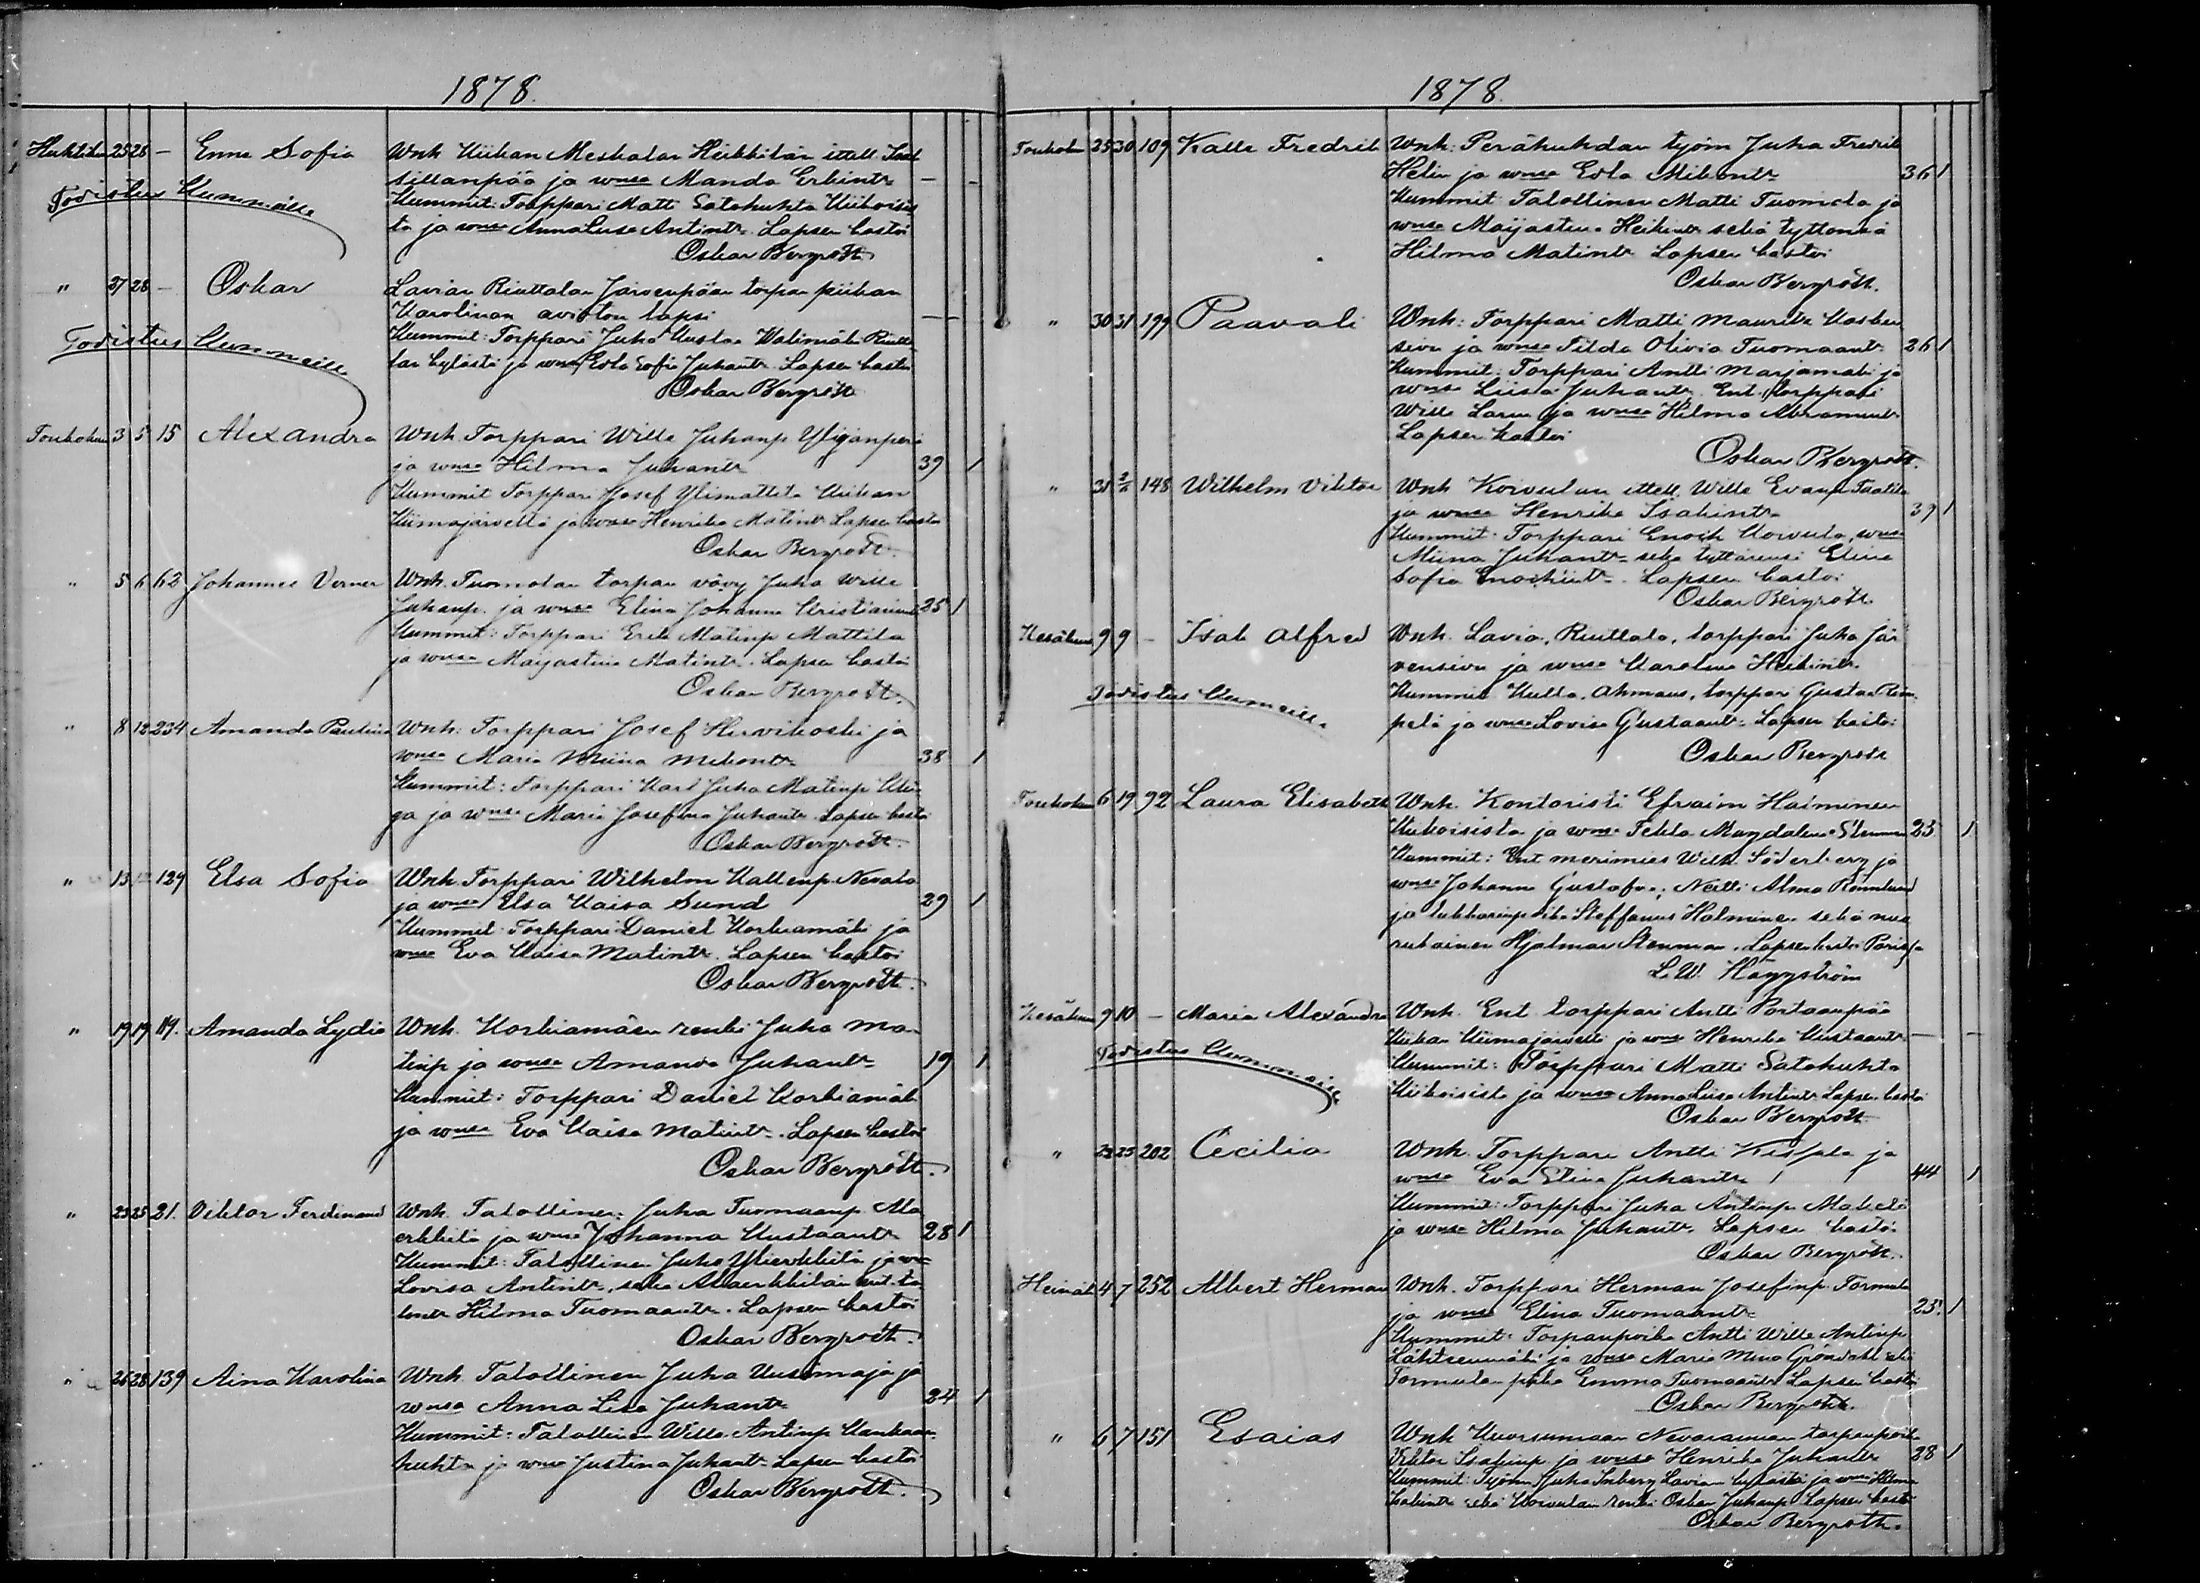 1878.
Huhtikuu 25 28 — Enna Sofia Wnh Kiikan Meskalan Heikkilän ittell. Isak
Sillanpää ja wmsa Manda Erkintr — —
Todistus Kummeille
Kummit: Torppari Matti Satokuhta Kiikoises
ta ja wmsa Anna Luisa Antintr. Lapsen kastoi
Oskar Bergroth
" 27 28 — Oskar Lavian Riuttalan Järvenpään torpan piikan
Karolinan avioton lapsi — —
Todistus Kummeille
Kummit: Torppari Juha Kustaa Walimäki Riutta
lan kylästä ja wmsa Eva Sofia Juhantr. Lapsen kastoi
Oskar Bergroth
Toukokuu 3 5 15 Alexandra Wnh. Torppari Wille Juhanp. Ylijanperi
ja wmsa Hilma Juhantr 39 1
Kummit Torppari Josef Ylimattila Kiikan
Kiimajärveltä ja wmsa Henrika Matintr Lapsen kastoi
Oskar Bergroth.
" 5 6 62 Johannes Verner Wnh. Tuomolan torpan vävy Juha Wille
Juhanp. ja wmsa Elina Johanna Kristianintr 25 1
Kummit: Torppari Erik Matinp Mattila
ja wmsa Maijastina Matintr. Lapsen kastoi
Oskar Bergroth.
" 8 12 234 Amanda Paulina Wnh: Torppari Josef Hirvikoski ja
wmsa Maria Miina Mikontr 38 1
Kummit: Torppari Karl Juha Matinp Kii
ga ja wmsa Maria Josefina Juhantr Lapsen kastoi
Oskar Bergroth.
" 13 129 Elsa Sofia Wnh. Torppari Wilhelm Kallenp. Nevala
ja wmsa Elsa Kaisa Sund 29 1
Kummit: Torppari Daniel Korkiamäki ja
wmsa Eva Kaisa Matintr. Lapsen kastoi
Oskar Bergroth.
" 19 19 119. Amanda Lydia Wnh. Korkiamäen renki Juha Ma
tinp ja wmsa Amanda Juhantr 19 1
Kummit: Torppari Daniel Korkiamäki
ja wmsa Eva Kaisa Matintr. Lapsen kastoi
Oskar Bergroth.
" 23 25 21. Viktor Ferdinand Wnh. Talollinen Juha Tuomaanp. Ala
erkkilä ja wmsa Johanna Kustaantr 28 1
Kummit: Talollinen Juha Ylierkkilä ja wm
Lovisa Antintr, sekä Alaerkkilän ent. ta
lontr Hilma Tuomaantr. Lapsen kastoi
Oskar Bergroth.
" 26 28 139 Aina Karolina Wnh. Talollinen Juha Uusimaja ja
wmsa Anna Lisa Juhantr 24 1
Kummit: Talollinen Wille Antinp Kankaan
huhta ja wmsa Justina Juhantr Lapsen kastoi
Oskar Bergroth.
1878.
Toukokuu 25 30 109 Kalle Fredrik Wnh: Perähuhdan työm Juha Fredrik
Helin ja wmsa Eva Mikontr 36 1
Kummit Talollinen Matti Tuomola ja
wmsa Maijastina Heikintr sekä tyttönsä
Hilma Matintr Lapsen kastoi
Oskar Bergroth.
" 30 31 199 Paavali Wnh: Torppari Matti Mauritz Kosken
sivu ja wmsa Tilda Olivia Tuomaantr 26 1
Kummit: Torppari Antti Marjamäki ja
wmsa Liisa Juhantr. Ent. torppari
Wille Larin ja wmsa Hilma Abramintr
Lapsen kastoi
Oskar Bergroth.
" 31 2/6 148 Wilhelm Viktor Wnh Koivulan ittell. Wille Evanp
ja wmsa Henrika Isakintr 39 1
Kummit: Torppari Enok Koivula, wmsa
Miina Juhantr sekä tyttärensä Elina
Sofia Enokintr. Lapsen kastoi
Oskar Bergroth
Kesäkuu 9 9 — Isak Alfred Wnh. Lavia, Riuttala, torppari Juha Jär
vensivu ja wmsa Karolina Heikintr.
Todistus Kummeille
Kummit Kulla, Ahmaus, torppari Gustaa
pelä ja wmsa Lovisa Gustaantr. Lapsen kastoi
Oskar Bergroth
Toukokuu 6 19 92 Laura Elisabeth Wnh. Kontoristi Efraim Halminen
Kiikoisista ja wmsa Tekla Magdalena Stenman 23 1
Kummit: Ent merimies Wilh. Söderberg ja
wmsa Johanna Gustafva; Neiti Alma Rönnlund
ja lukkarinpoika Steffanus Halminen sekä nuo
rukainen Hjalmar Stenman. Lapsen kastoi Porissa
L. W. Häggström
Kesäkuu 9 10 — Maria Alexandra Wnh. Ent. torppari Antti Portaanpää
Kiikan Kiimajärveltä ja wmsa Henrika Kustaantr — —
Todistus Kummeille
Kummit: Torppari Matti Satokuhta
Kiikoisista ja wmsa Anna Luisa Antintr Lapsen kastoi
Oskar Bergroth
" 23 25 202 Cecilia Wnh. Torppari Antti ja
wmsa Eva Stina Juhantr 44 1
Kummit: Torppari Juha Antinp Mäkelä
ja wmsa Hilma Juhantr. Lapsen kastoi
Oskar Bergroth.
Heinäk 4 7 252 Albert Herman Wnh. Torppari Herman Josefinp. Formula
ja wmsa Elina Tuomaantr 25. 1
Kummit: Torpanpoika Antti Wille Antinp
Lähteenmäki ja wmsa Maria Mina Gröndahl sekä
Formulan piika Emma Tuomaantr Lapsen kastoi
Oskar Bergroth.
" 6 7 151 Esaias Wnh Kuorsumaan Nevaraunion torpanpoika
Viktor Isakinp ja wmsa Henrika Juhantr 28 1
Kummit: Työm Juha Inberg Lavian kylästä ja wmsa Hilma
Isakintr sekä Koivulan renki Oskar Juhanp Lapsen kastoi
Oskar Bergroth.